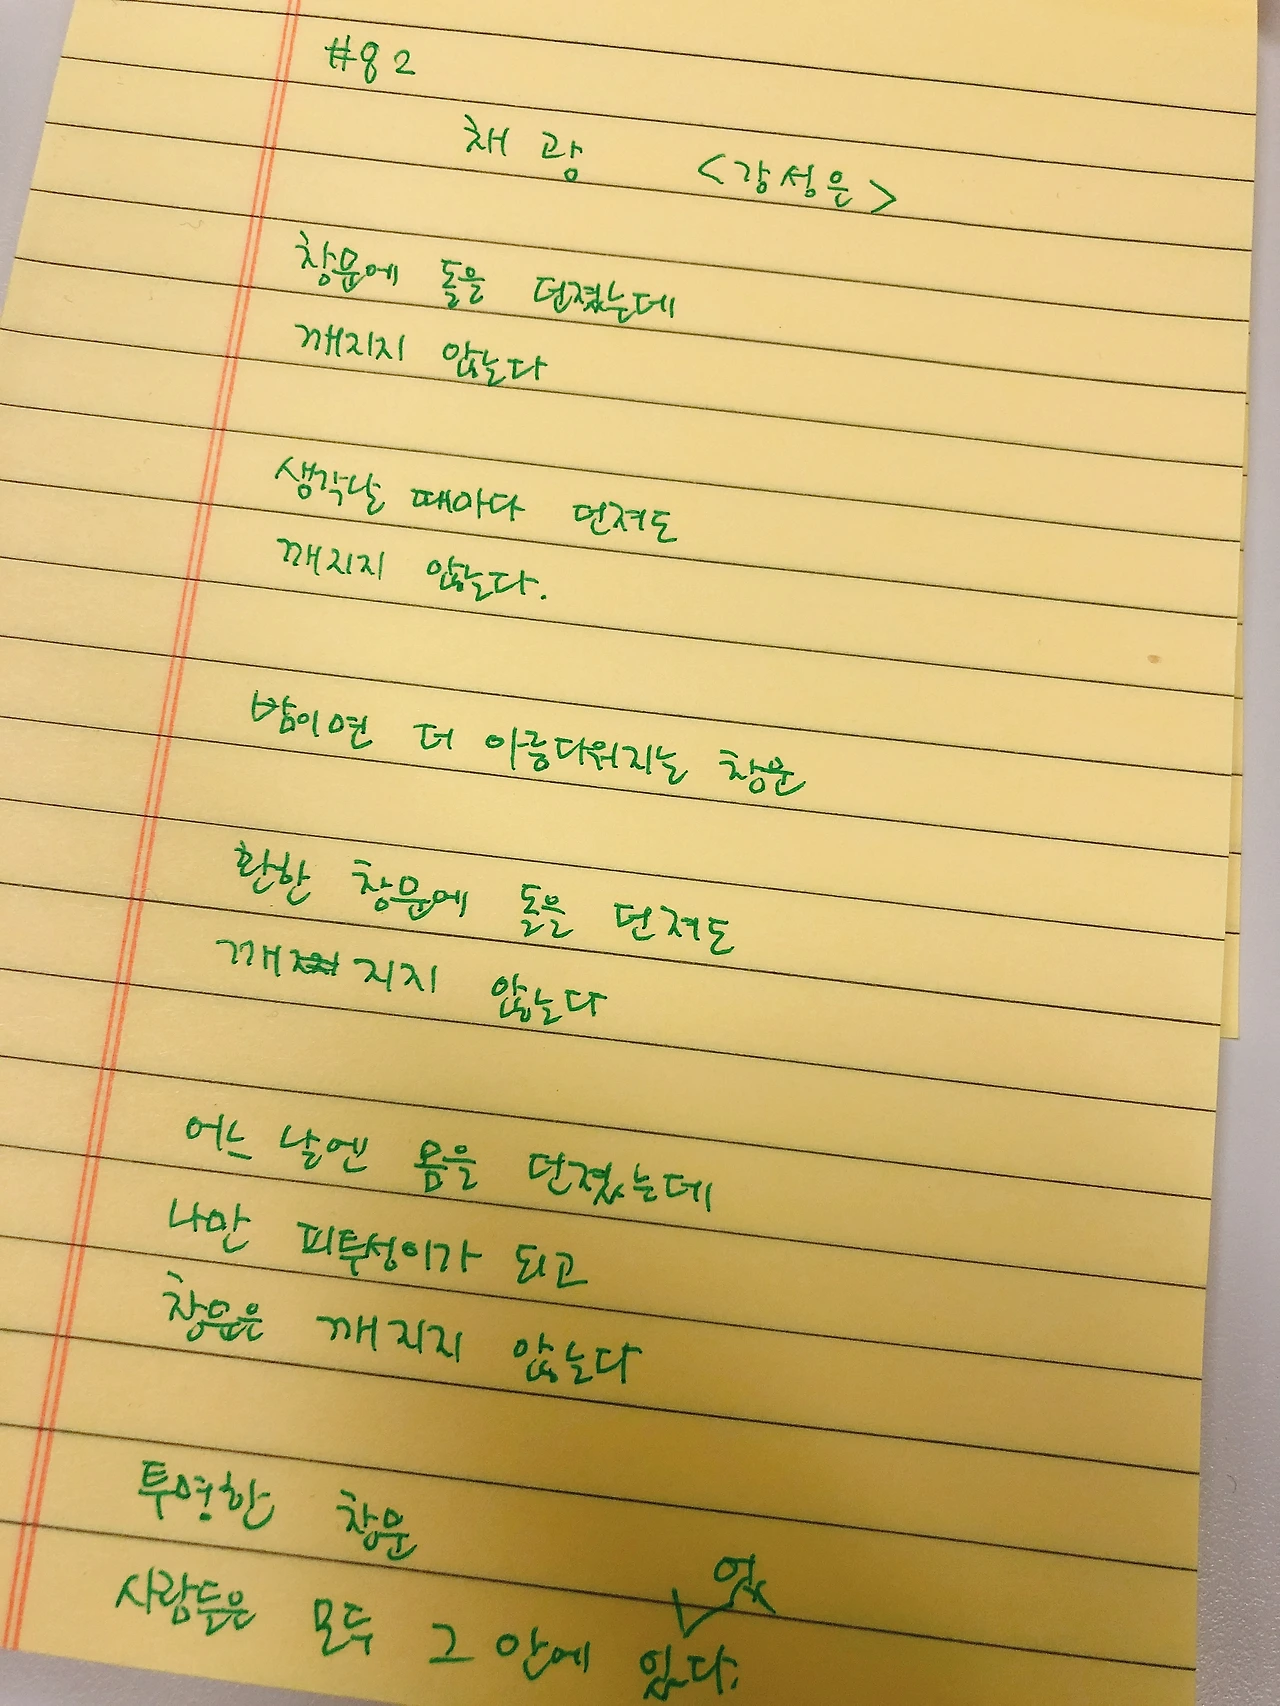 #82
채광 <강성은>
창문에 돌을 던졌는데
깨지지 않는다
생각날 때마다 던져도
깨지지 않는다.
밤이면 더 아름다워지는 창문
환한 창문에 돌을 던져도
깨지지 않는다
어느 날엔 몸을 던졌는데
나만 피투성이가 되고
창문은 깨지지 않는다
투명한 창문
사람들은 모두 그 안에 있었다.